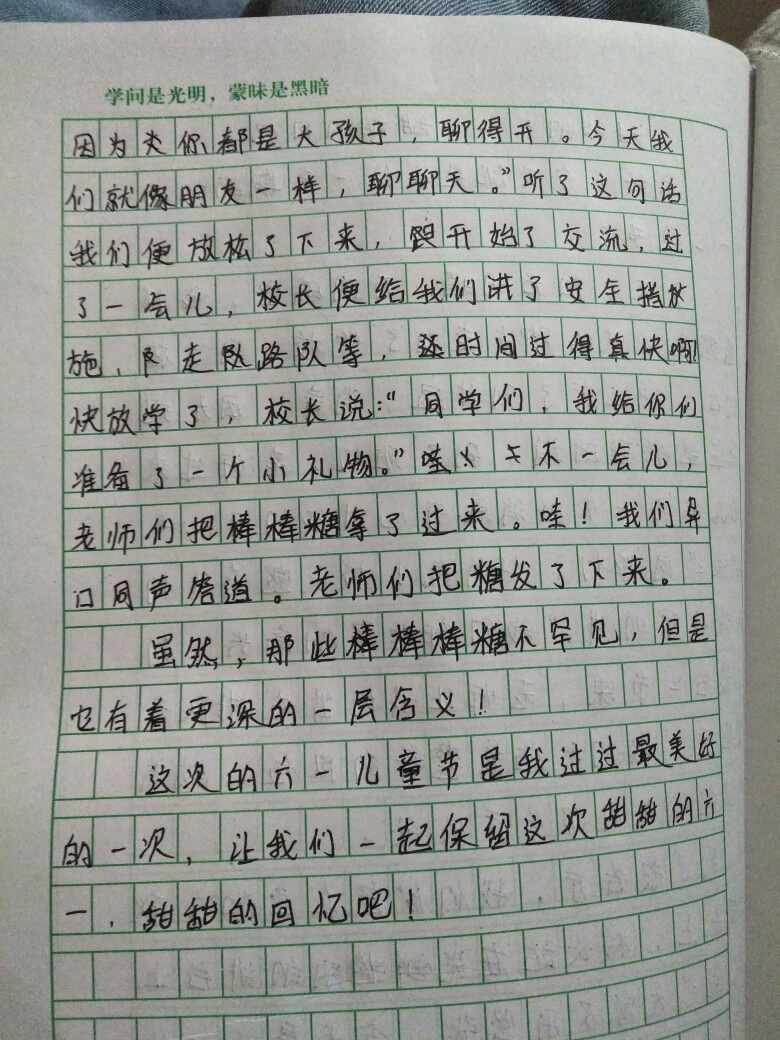 学问是光明，蒙昧是黑暗
因为你都是大孩子，聊得开。今天我
们就像朋友一样，聊聊天。”听了这句话
我们便放松了下来，跟开始了交流，过
了一会儿，校长便给我们讲了安全措放
施、走路队等，还时间过得真快啊！
快放学了，校长说：“同学们，我给你们
准备了一个小礼物。”哇不一会儿，
老师们把棒棒糖拿了过来。哇！我们异
口同声答道。老师们把糖发了下来。
虽然，那些棒棒棒糖不罕见，但是
也有着更深的一层含义！
这次的六一儿童节是我过过最美好
的一次，让我们一起保留这次甜甜的六
一，甜甜的回忆吧！